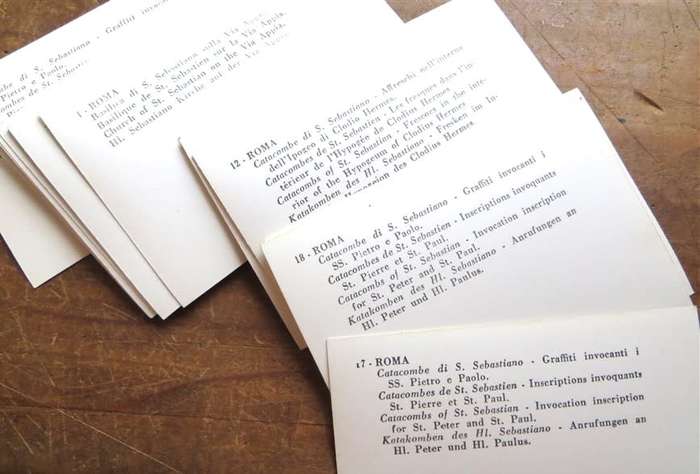 ombe di S. Sebastiano - Graffiti invoc
Pietro e Paolo.
combes de St. Sebastien
1 - ROMA
Basilica di S. Sebastiano sulla Via Appia.
Basilique de St. Sebastien sur la Via Appia.
Church of St. Sebastian on the Via Appia.
Hl. Sebastiano Kirche auf der Via Appia.
12 - ROMA
Catacombe di S. Sebastiano - Affreschi nell'interno
dell'Ipogeo di Clodio Hermes.
Catacombes de St. Sebastien - Les fresques dans l'in-
térieur de l'Hypogée de Clodius Hermes
Catacombs of St. Sebastian - Frescoes in the inte-
rior of the Hypogeum of Clodius Hermes
Katakomben des Hl. Sebastiano - Fresken im In-
des Clodius Hermes
18 - ROMA
Catacombe di S. Sebastiano - Graffiti invocanti i
SS. Pietro e Paolo.
Catacombes de St. Sebastien - Inscriptions invoquants
St. Pierre et St. Paul.
Catacombs of St. Sebastian - Invocation inscription
for St. Peter and St. Paul.
Katakomben des Hl. Sebastiano - Anrufungen an
Hl. Peter und Hl. Paulus.
17 - ROMA
Catacombe di S. Sebastiano - Graffiti invocanti i
SS. Pietro e Paolo.
Catacombes de St. Sebastien - Inscriptions invoquants
St. Pierre et St. Paul.
Catacombs of St. Sebastian - Invocation inscription
for St. Peter and St. Paul.
Katakomben des Hl. Sebastiano - Anrufungen an
Hl. Peter und Hl. Paulus.